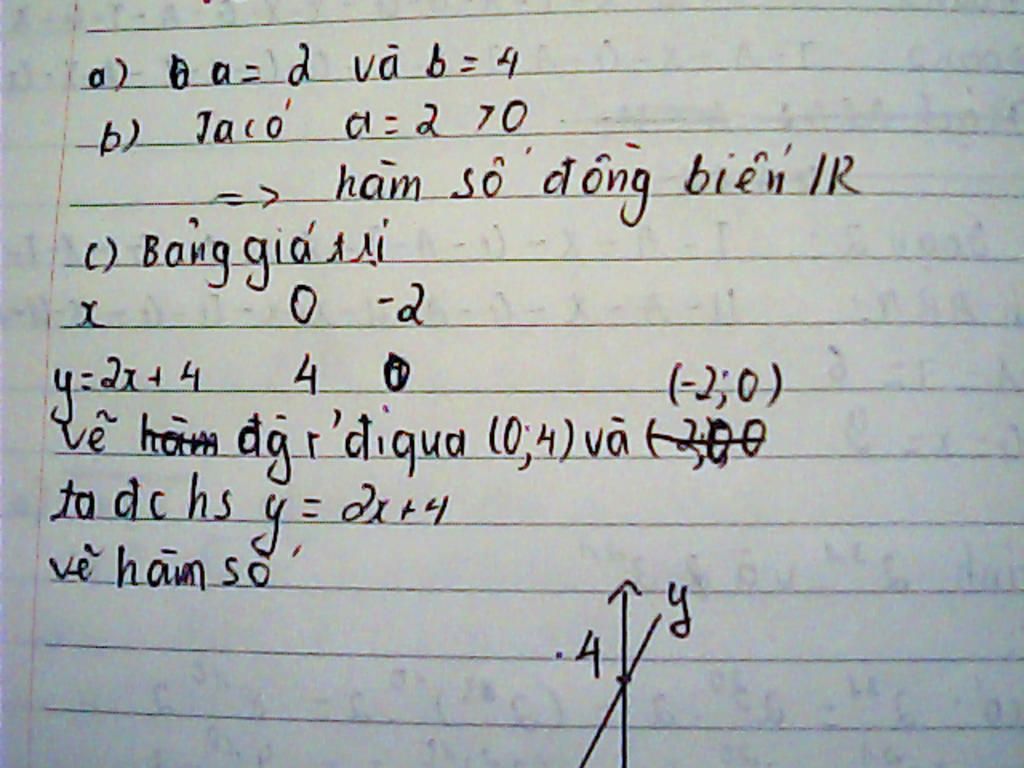 a) a = 2 và b = 4
b) Ta có a = 2 > 0
=> hàm số đồng biến IR
c) Bảng giá trị
x 0 -2
y = 2x + 4 4 0
(-2; 0)
vẽ hàm đg r' đi qua (0; 4) và
ta đc hs y = 2x + 4
vẽ hàm số
y
4